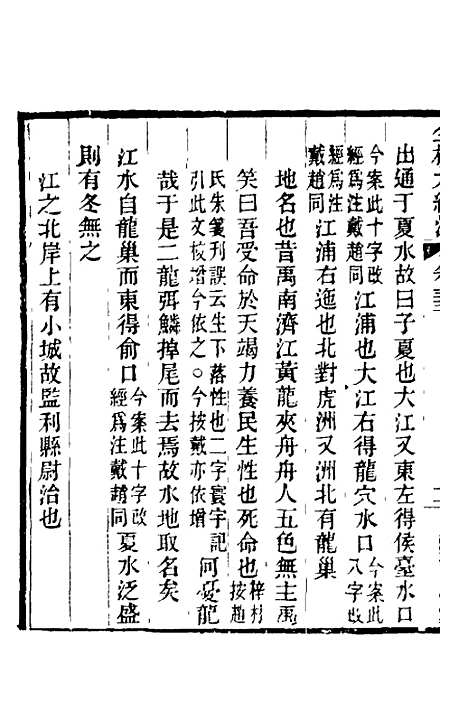 出通于夏水故曰子夏也大江又東左得侯臺水口
今案此十字改
經爲注戴趙同
江浦也大江右得龍穴水口
今案此
八字改
經爲注
戴趙同
江浦右迤也北對虎洲又洲北有龍巢
地名也昔禹南濟江黃龍夾舟舟人五色無主禹
笑曰吾受命於天竭力養民生性也死命也
梓材
按趙
氏朱箋刊誤云生下落性也二字寰宇記
引此文校增今依之○今按戴亦依增
何憂龍
哉于是二龍弭鱗掉尾而去焉故水地取名矣
江水自龍巢而東得俞口
今案此十字改
經爲注戴趙同
夏水泛盛
則有冬無之
江之北岸上有小城故監利縣尉治也